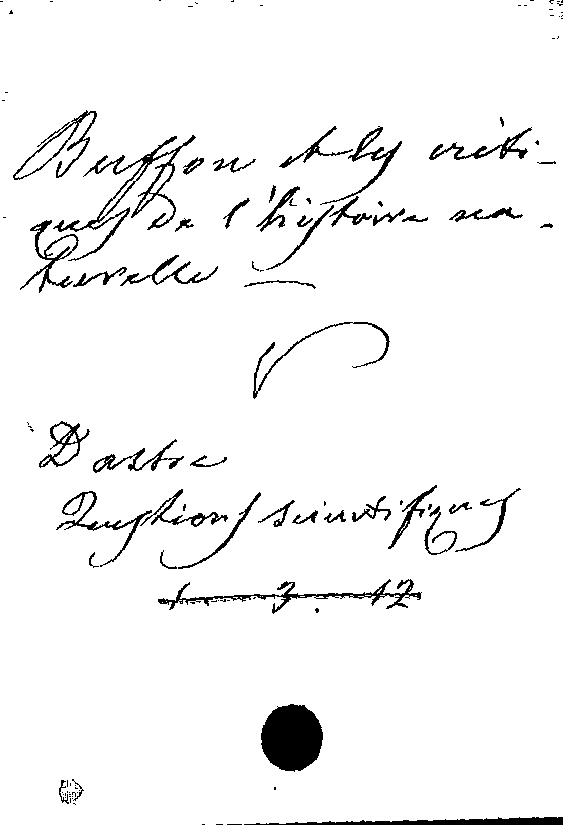 Buffon et les criti-
ques de l'histoire na-
turelle —
Dastre
Questions scientifiques
1. 3. 12